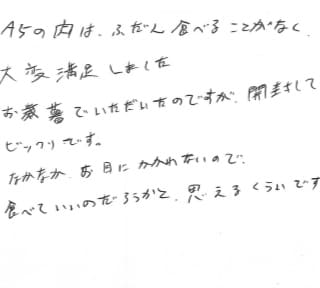 A5の肉は、ふだん食べることがなく、
大変満足しました
お歳暮でいただいたのですが、開封して
ビックリです。
なかなか、お目にかかれないので、
食べていいのだろうかと、思えるくらいです